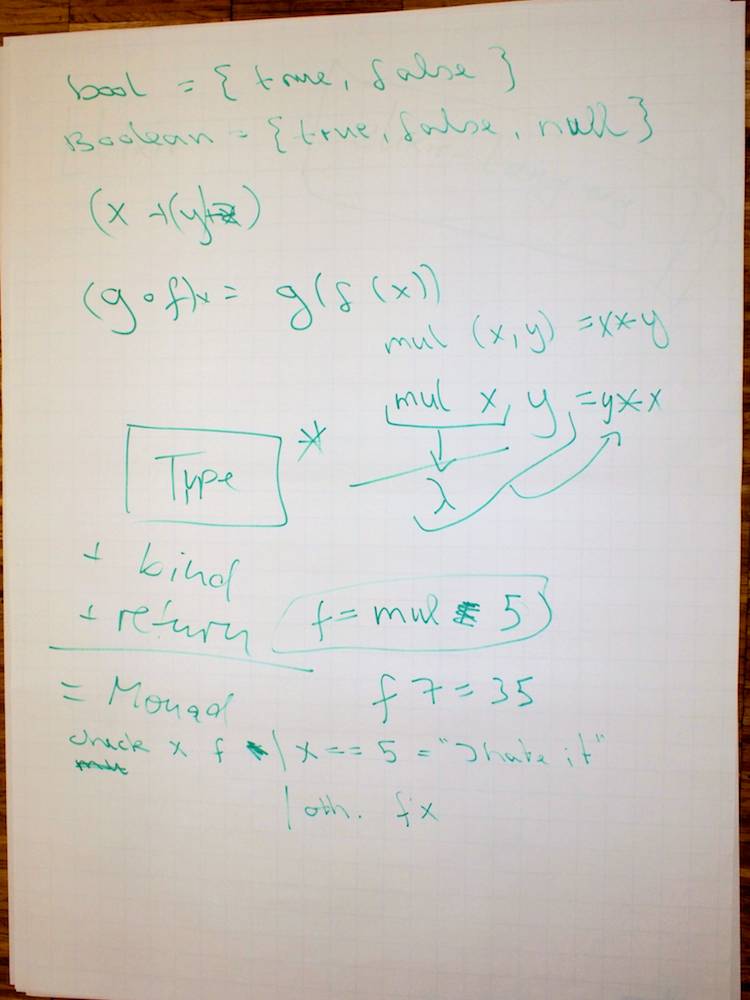 bool = { true, false }
Boolean = { true, false, null }
(x +(y+z)
(g ∘ f)x = g(f(x))
mul (x,y) = x*y
mul x, y = y*x
Type *
λ
+ bind
+ return
f = mul 5
= Monad
f 7 = 35
check x f | x == 5 = "I hate it"
| oth. f x